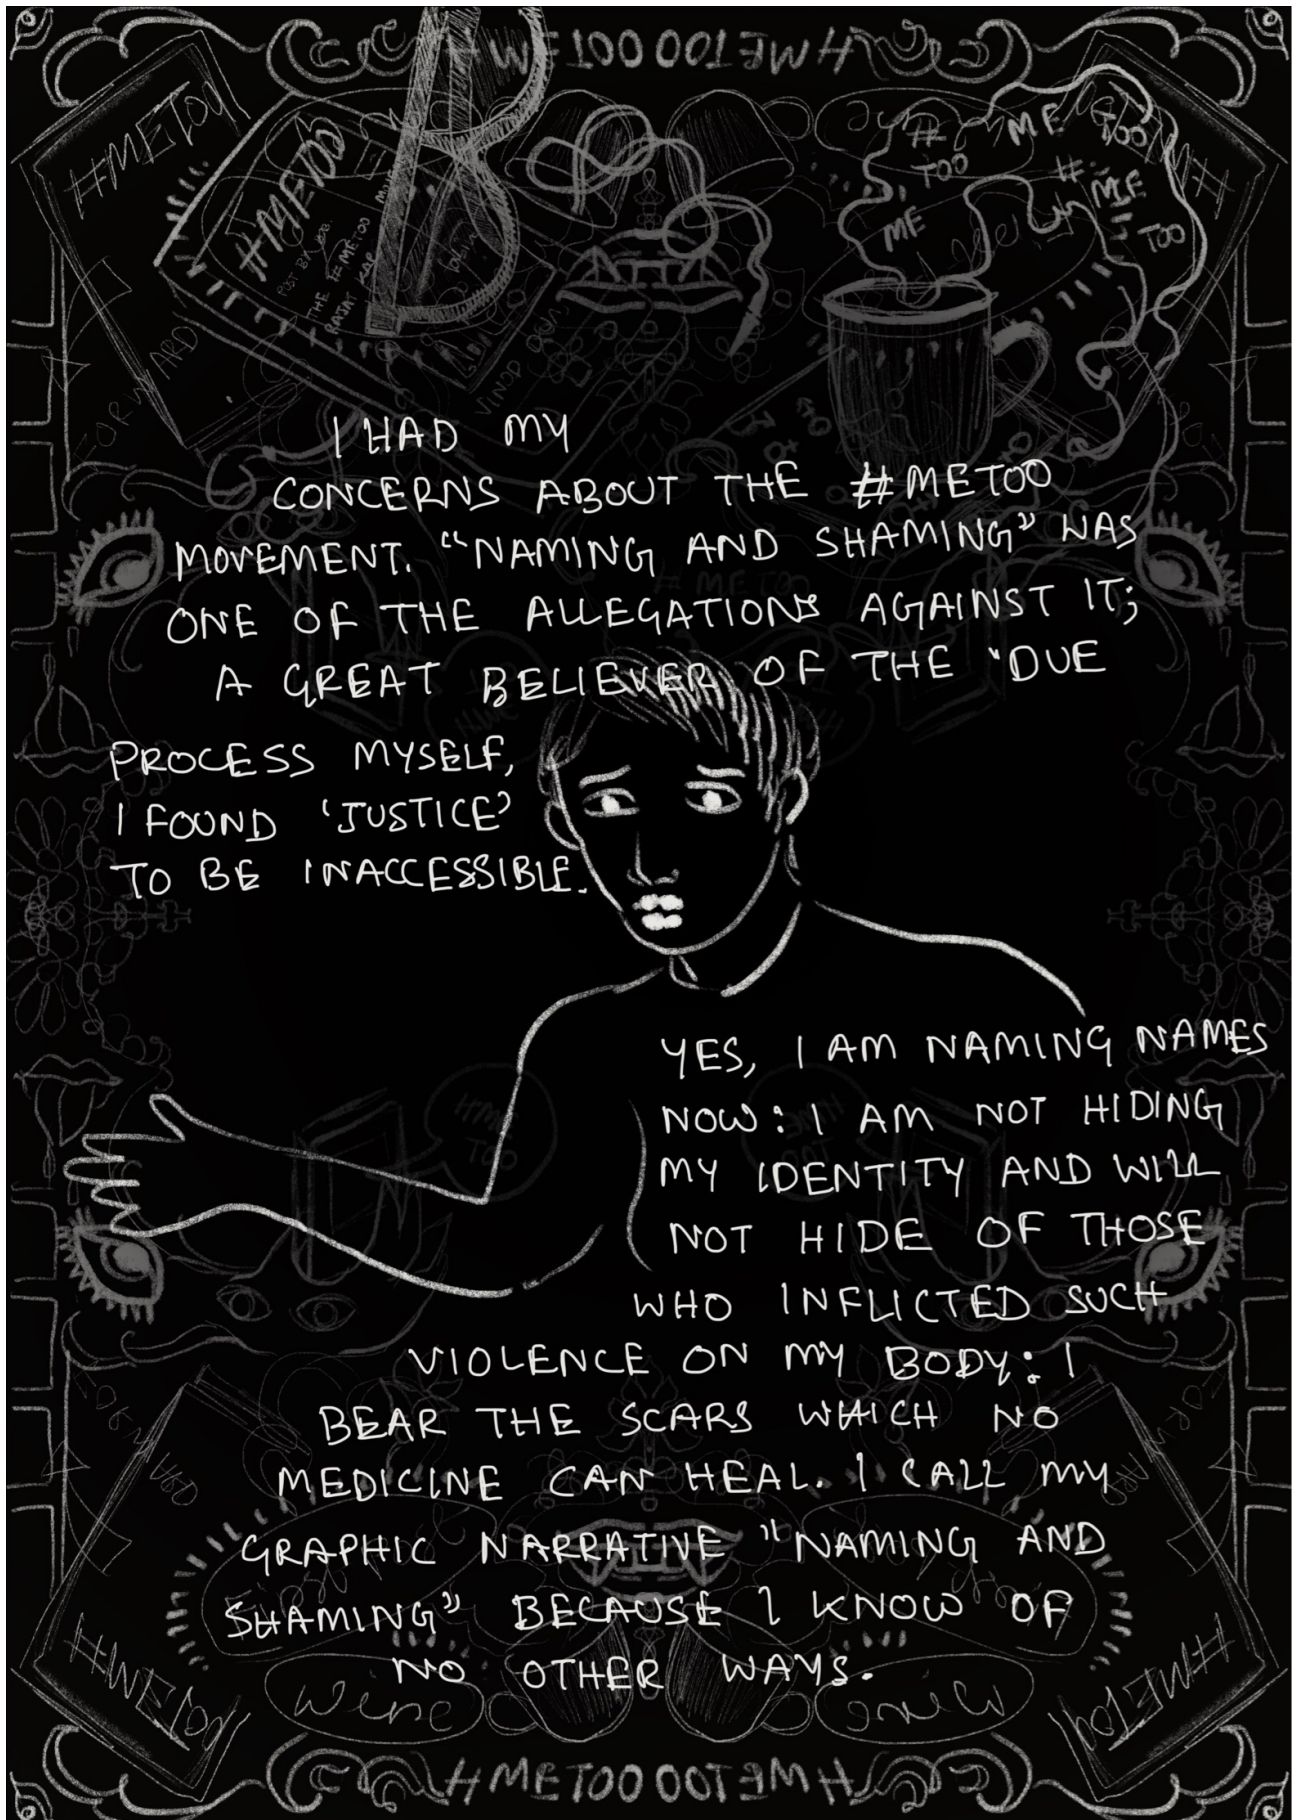 #METOO
#METOO
#METOO
THE #METOO
RAJAT KAP
VINOD
#
TOO
ME
TOO
ME
#
ME
TOO
I HAD MY
CONCERNS ABOUT THE #METOO
MOVEMENT. "NAMING AND SHAMING" WAS
ONE OF THE ALLEGATIONS AGAINST IT;
A GREAT BELIEVER OF THE 'DUE
PROCESS MYSELF,
I FOUND 'JUSTICE'
TO BE INACCESSIBLE.
YES, I AM NAMING NAMES
NOW: I AM NOT HIDING
MY IDENTITY AND WILL
NOT HIDE OF THOSE
WHO INFLICTED SUCH
VIOLENCE ON MY BODY: I
BEAR THE SCARS WHICH NO
MEDICINE CAN HEAL. I CALL MY
GRAPHIC NARRATIVE "NAMING AND
SHAMING" BECAUSE I KNOW OF
NO OTHER WAYS.
#METOO
#METOO
#METOO